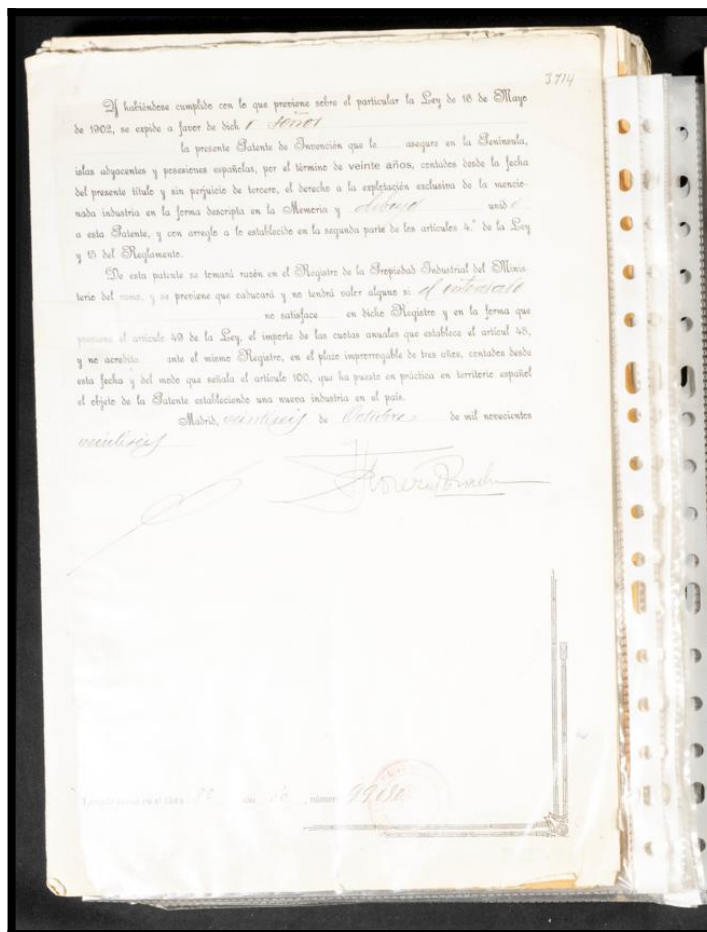 3714
Y habiéndose cumplido con lo que previene sobre el particular la Ley de 16 de Mayo
de 1902, se expide a favor de dich o señor
la presente Patente de Invención que le asegure en la Península,
islas adyacentes y posesiones españolas, por el término de veinte años, contados desde la fecha
del presente título y sin perjuicio de tercero, el derecho a la explotación exclusiva de la mencio-
nada industria en la forma descripta en la Memoria y dibujo unido
a esta Patente, y con arreglo a lo establecido en la segunda parte de los artículos 4.º de la Ley
y 15 del Reglamento.
De esta patente se tomará razón en el Registro de la Propiedad Industrial del Minis-
terio del ramo, y se previene que caducará y no tendrá valor alguno si el interesado
no satisface en dicho Registro y en la forma que
previene el artículo 49 de la Ley, el importe de las cuotas anuales que establece el artícul 48,
y no acredita ante el mismo Registro, en el plazo improrrogable de tres años, contados desde
esta fecha y del modo que señala el artículo 100, que ha puesto en práctica en territorio español
el objeto de la Patente estableciendo una nueva industria en el país.
Madrid, veintiseis de Octubre de mil novecientos
veintiseis
, número